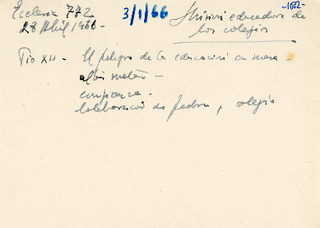 Ecclesia 772
3/1/66
Misión educadora de
los colegios
-1022-
28 Abril 1956-
Pío XII - El peligro de la educación en masa -
confianza -
Colaboración de padres, colegio